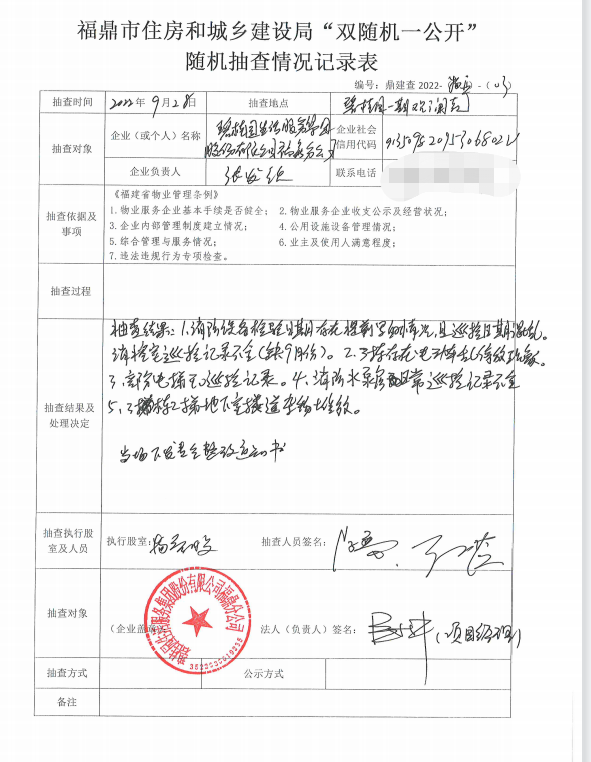 福鼎市住房和城乡建设局“双随机一公开”
随机抽查情况记录表
编号：鼎建查2022- -（03）
抽查时间 2022年9月28日 抽查地点 碧桂园一期
抽查对象 企业（或个人）名称 碧桂园生活服务集团股份有限公司福鼎分公司 企业社会信用代码
企业负责人 联系电话
抽查依据及事项
《福建省物业管理条例》
1.物业服务企业基本手续是否健全； 2.物业服务企业收支公示及经营状况；
3.企业内部管理制度建立情况； 4.公用设施设备管理情况；
5.综合管理与服务情况； 6.业主及使用人满意程度；
7.违法违规行为专项检查。
抽查过程
抽查结果及处理决定
抽查结果：1.消防设备检验日期存在提前写的情况，且巡检日期混乱。
消控室巡检记录不全（缺9月份）。2.3栋存在电动车乱停放现象。
3.客货电梯无巡检记录。4.消防水泵房日常巡检记录不全
5. 梯地下室楼道杂物堆放。
当场下发责令整改通知书
抽查执行股室及人员 执行股室： 抽查人员签名：
抽查对象 （企业盖 法人（负责人）签名： （项目经理）
抽查方式 公示方式
备注